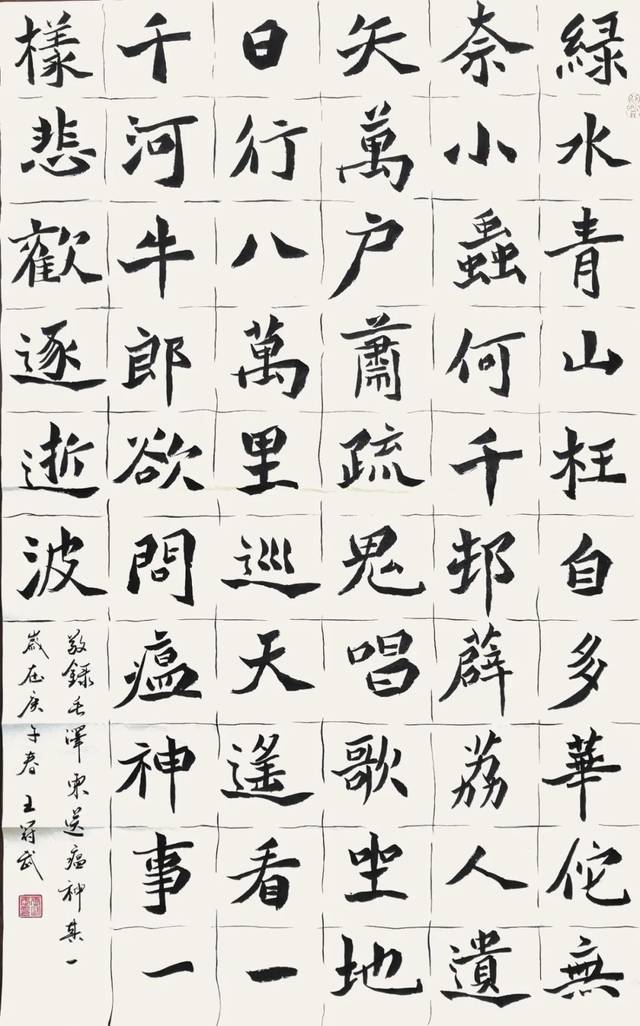 綠水青山枉自多華佗無
奈小蟲何千邨薜荔人遺
矢萬户蕭疏鬼唱歌坐地
日行八萬里巡天遙看一
千河牛郎欲問瘟神事一
樣悲歡逐逝波
敬錄毛澤東送瘟神其一
歲在庚子春 王冠武